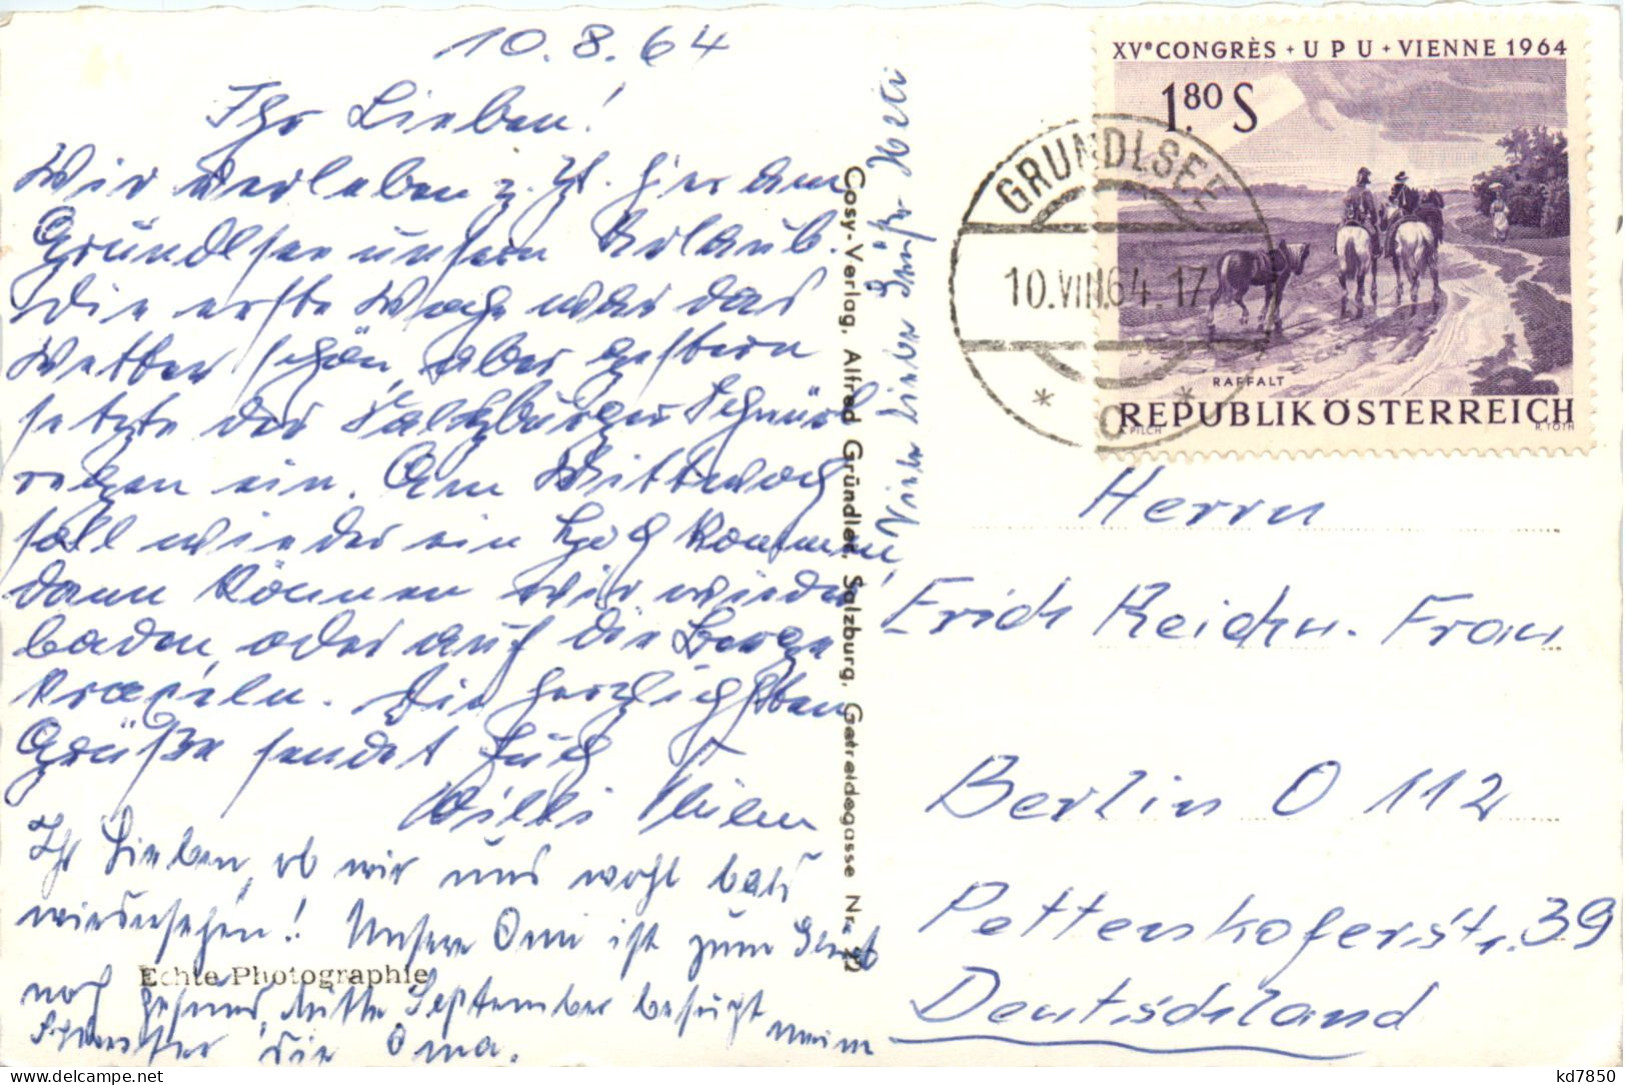 10.8.64
Ihr Lieben!
Wir verleben z. Zt. hier am
Grundlsee unsern Urlaub.
Die erste Woche war das
Wetter schön, aber gestern
setzte der Salzburger Schnürl
regen ein. Am Mittwoch
soll wieder ein Hoch kommen,
dann können wir wieder
baden, oder auf die Berge
kraxeln. Die herzlichsten
Grüße sendet Euch
Willi
Ihr Lieben, ob wir uns wohl bald
wiedersehen! Unsere Omi ist zum Glück
noch gesund, Mitte September besucht meine
Schwester die Oma.
Viele liebe Grüße
Echte Photographie
Cosy-Verlag, Alfred Gründler, Salzburg, Getreidegasse Nr. 22
XVe CONGRÈS + U P U + VIENNE 1964
1.80 S
RAFFALT
REPUBLIK ÖSTERREICH
A. PILCH R. TOTH
GRUNDLSEE
10.VIII.64.17
Herrn
Erich Reichn. Frau
Berlin O 112
Pettenkoferstr. 39
Deutschland
kd7850